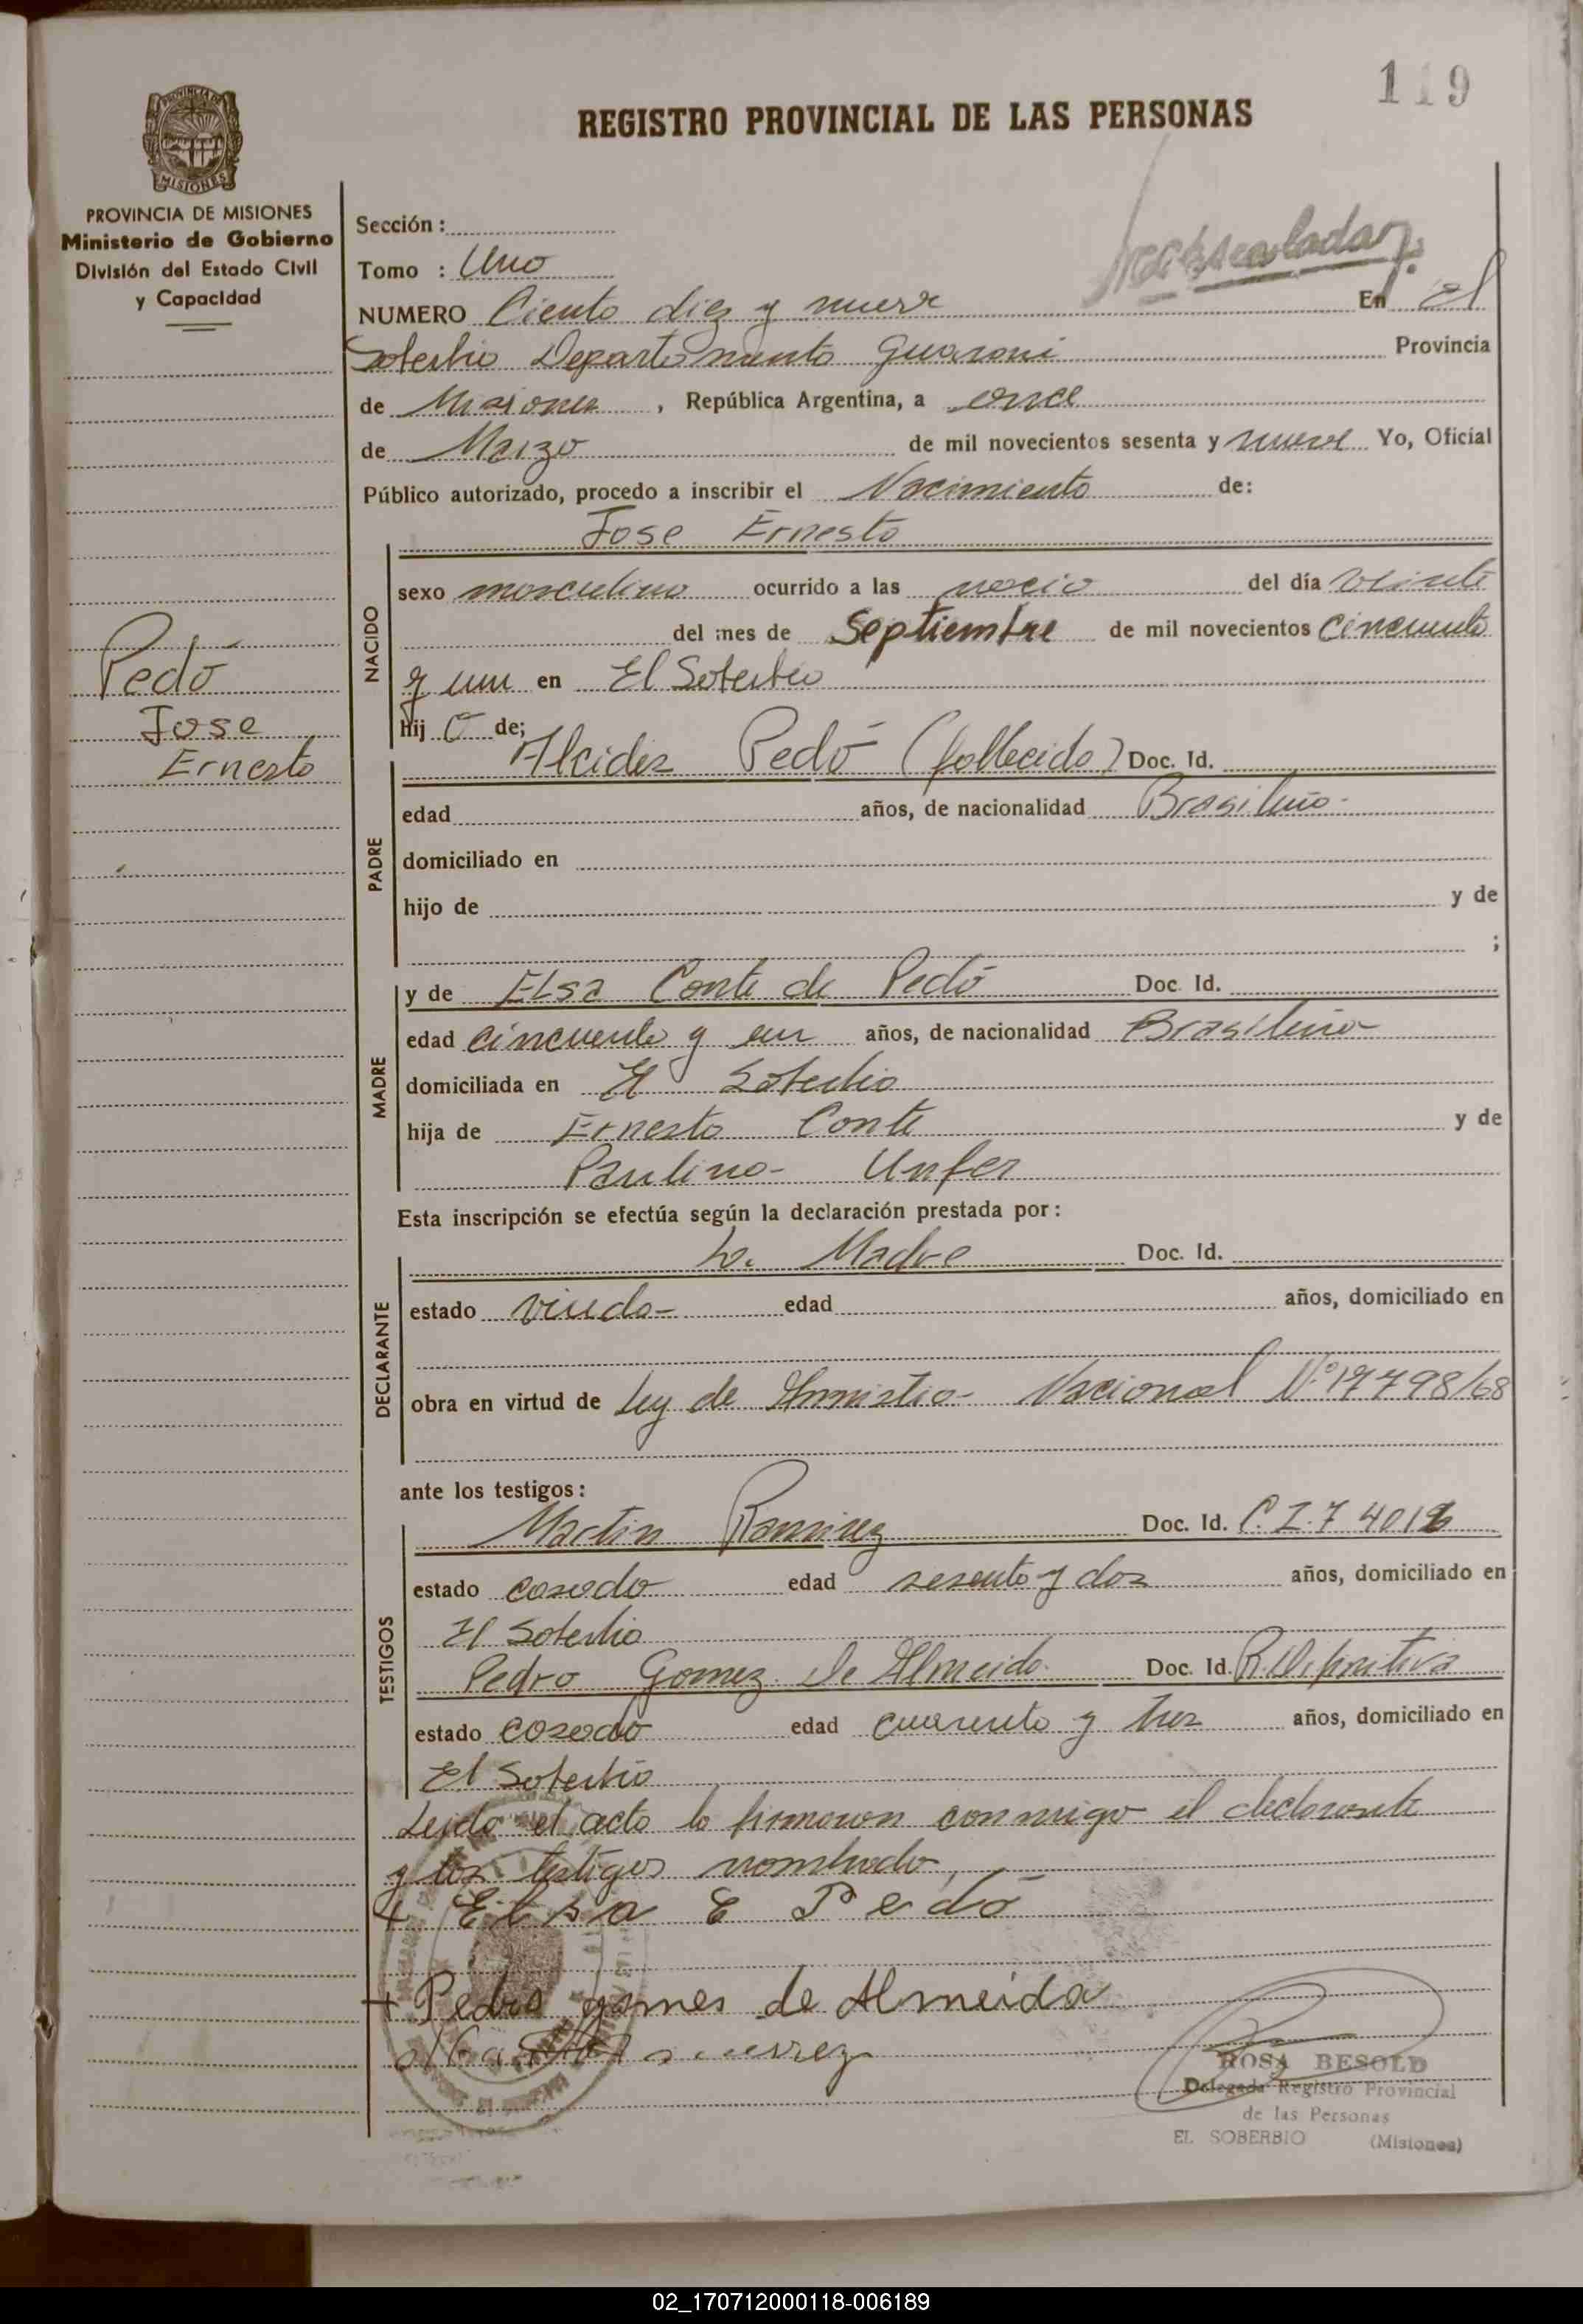 119
REGISTRO PROVINCIAL DE LAS PERSONAS
PROVINCIA DE
MISIONES
PROVINCIA DE MISIONES
Ministerio de Gobierno
División del Estado Civil
y Capacidad
Pedó
Jose
Ernesto
Sección :
Tomo : Uno
NUMERO Ciento diez y nueve En El
Soberbio Departamento Guarani Provincia
de Misiones , República Argentina, a once
de Marzo de mil novecientos sesenta y nueve Yo, Oficial
Público autorizado, procedo a inscribir el Nacimiento de:
Jose Ernesto
NACIDO
sexo masculino ocurrido a las del día veinte
del mes de Septiembre de mil novecientos cincuenta
y uno en El Soberbio
hij o de;
PADRE
Alcides Pedó (fallecido) Doc. Id.
edad años, de nacionalidad Brasileña-
domiciliado en
hijo de y de
;
MADRE
y de Elsa Conte de Pedó Doc. Id.
edad cincuenta y un años, de nacionalidad Brasileña
domiciliada en El Soberbio
hija de Ernesto Conte y de
Paulina Unfer
Esta inscripción se efectúa según la declaración prestada por :
DECLARANTE
La Madre Doc. Id.
estado viuda- edad años, domiciliado en
obra en virtud de Ley de Amnistia Nacional Nº 17798/68
ante los testigos :
TESTIGOS
Martin Ramirez Doc. Id. C.I. 7
estado casado edad sesenta y dos años, domiciliado en
El Soberbio
Pedro Gomez de Almeida Doc. Id.
estado casado edad cuarenta y tres años, domiciliado en
El Soberbio
Leida el acta la firmaron conmigo el declarante
y los testigos nombrado,
+ Elsa E Pedó
+ Pedro gomes de Almeida
ROSA BESOLD
Delegada Registro Provincial
de las Personas
EL SOBERBIO (Misiones)
02_170712000118-006189